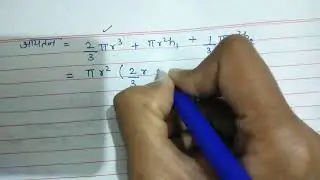 आयतन = 2/3 πr³ + πr²h₁ + 1/3 πr²h₂
= πr² ( 2/3 r